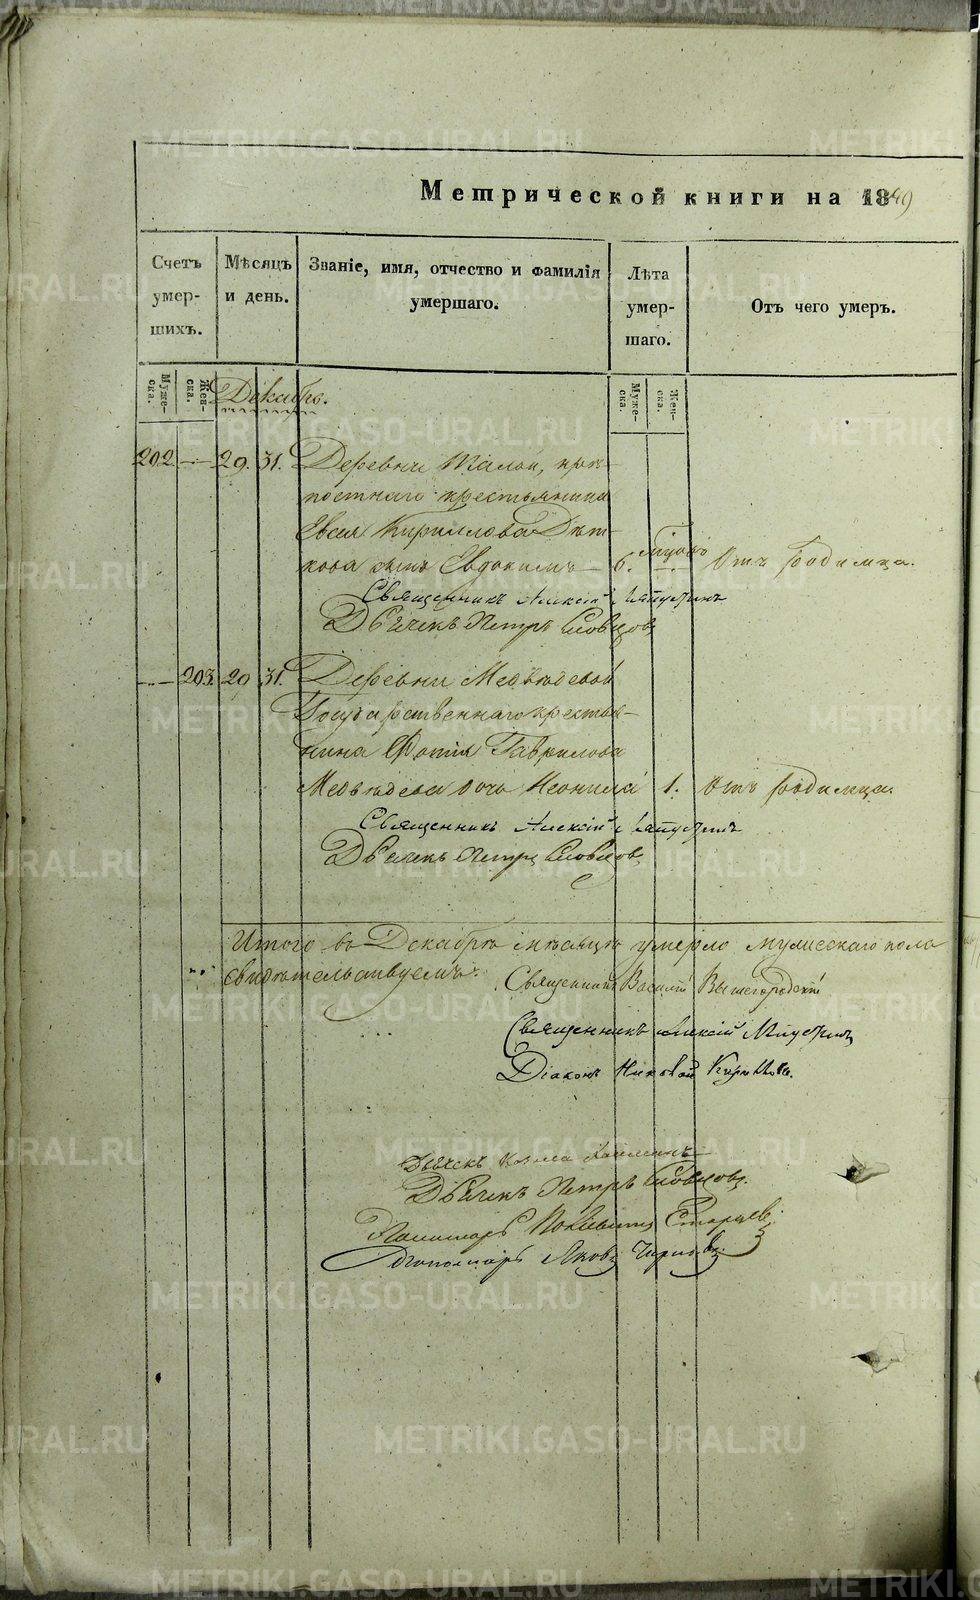 METRIKI.GASO-URAL.RU
Метрической книги на 1849
Счетъ умер- шихъ.
Мѣсяцъ и день.
Званіе, имя, отчество и фамилія умершаго.
Лѣта умер- шаго.
Отъ чего умеръ.
Муже- ска.
Жен- ска.
Декабрь.
Муже- ска.
Жен- ска.
202 — 29. 31. Деревни Малой, кре-
постнаго крестьянина
Евсея Кириллова
кова сынъ Евдокимъ — 6. Отъ родимца.
Священникъ Алексій
Дьячекъ Петръ Словцовъ
— 203. 29 31. Деревни Медвѣдевой
Государственнаго крестья-
нина Фотія Гаврилова
Медвѣдева дочь Неонила 1. Отъ родимца.
Священникъ Алексій
Дьячекъ Петръ Словцовъ
Итого въ Декабрѣ мѣсяцѣ умерло мужескаго пола
свидѣтельствуемъ:
Священникъ Василій Вышегородскій
Священникъ Алексій
Діаконъ Николай
Дьячекъ Козма
Дьячекъ Петръ Словцовъ.
Пономарь
Пономарь Яковъ